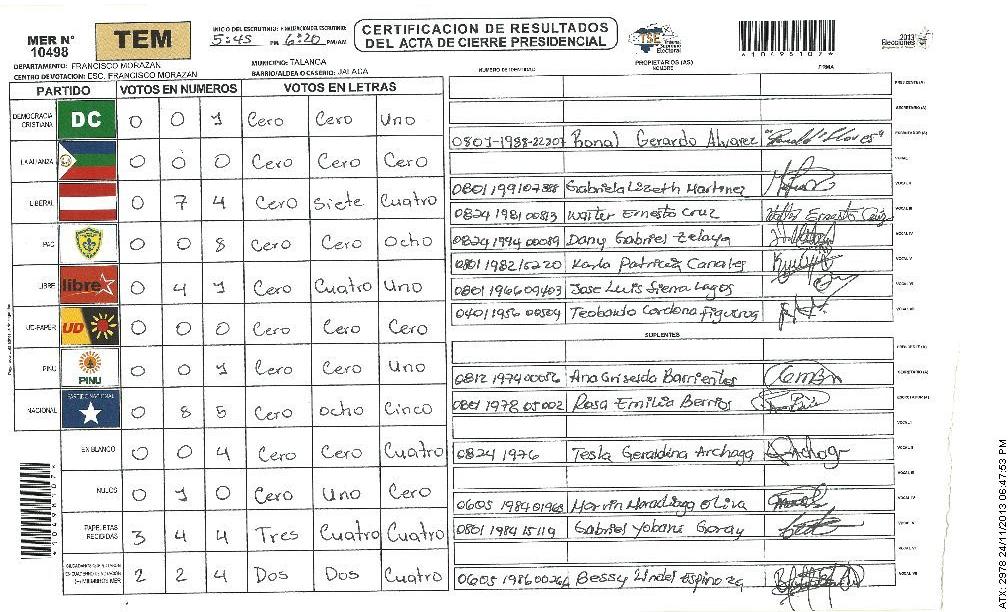 MER N° 10498
TEM
INICIO DEL ESCRUTINIO: FINALIZACION DEL ESCRUTINIO:
5:45 PM 6:20 PM/AM
CERTIFICACION DE RESULTADOS
DEL ACTA DE CIERRE PRESIDENCIAL
TSE Tribunal Supremo Electoral
2013 Elecciones
DEPARTAMENTO: FRANCISCO MORAZAN
MUNICIPIO: TALANGA
CENTRO DE VOTACION: ESC. FRANCISCO MORAZAN
BARRIO/ALDEA O CASERIO: JALACA
NUMERO DE IDENTIDAD
PROPIETARIOS (AS)
NOMBRE
FIRMA
PARTIDO VOTOS EN NUMEROS VOTOS EN LETRAS
DEMOCRACIA CRISTIANA DC 0 0 1 Cero Cero Uno
LA ALIANZA 0 0 0 Cero Cero Cero
LIBERAL 0 7 4 Cero Siete Cuatro
PAC 0 0 8 Cero Cero Ocho
LIBRE libre 0 4 1 Cero Cuatro Uno
UD-FAPER UD 0 0 0 Cero Cero Cero
PINU PINU 0 0 1 Cero Cero Uno
NACIONAL PARTIDO NACIONAL 0 8 5 Cero Ocho Cinco
EN BLANCO 0 0 4 Cero Cero Cuatro
NULOS 0 1 0 Cero Uno Cero
PAPELETAS RECIBIDAS 3 4 4 Tres Cuatro Cuatro
2 2 4 Dos Dos Cuatro
PRESIDENTE (A)
SECRETARIO (A)
Ronal Gerardo Alvarez ESCRUTADOR (A)
VOCAL I
Gabriela Lizeth Martinez VOCAL II
0824 1981 00813 Walter Ernesto Cruz VOCAL III
0824 1994 00089 Dany Gabriel Zelaya VOCAL IV
Karla Patricia Canales VOCAL V
0801 196609403 Jose Luis Siena Lagos
0401 1956 00504 Teobaldo Cardona Figueroa
SUPLENTES
PRESIDENTE (A)
0812 1974 00056 Ana Griselda Barrientos SECRETARIO (A)
0801 1978 05002 Rosa Emilia Berrios ESCRUTADOR (A)
VOCAL I
0824 1976 Tesla Geraldina Archaga VOCAL II
VOCAL III
0605 1984 01963 Marvin Maradiaga Oliva VOCAL IV
0801 1984 15119 Gabriel Yobani Garay VOCAL V
VOCAL VI
Bessy Lindel Espinoza VOCAL VII
ATX: 2978 24/11/2013 06:47:53 PM